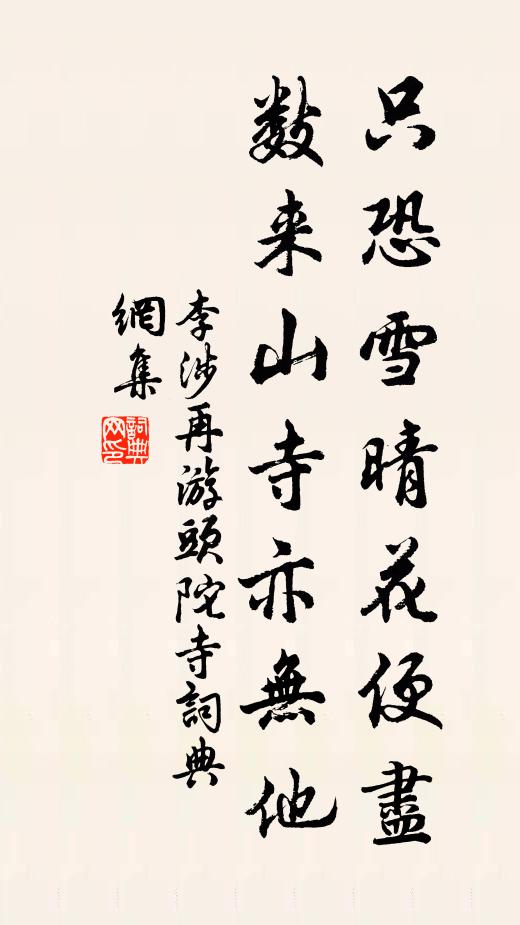 只恐雪晴花便盡
數来山寺亦無他
李涉再游頭陀寺詞典
網集
詞典
网印